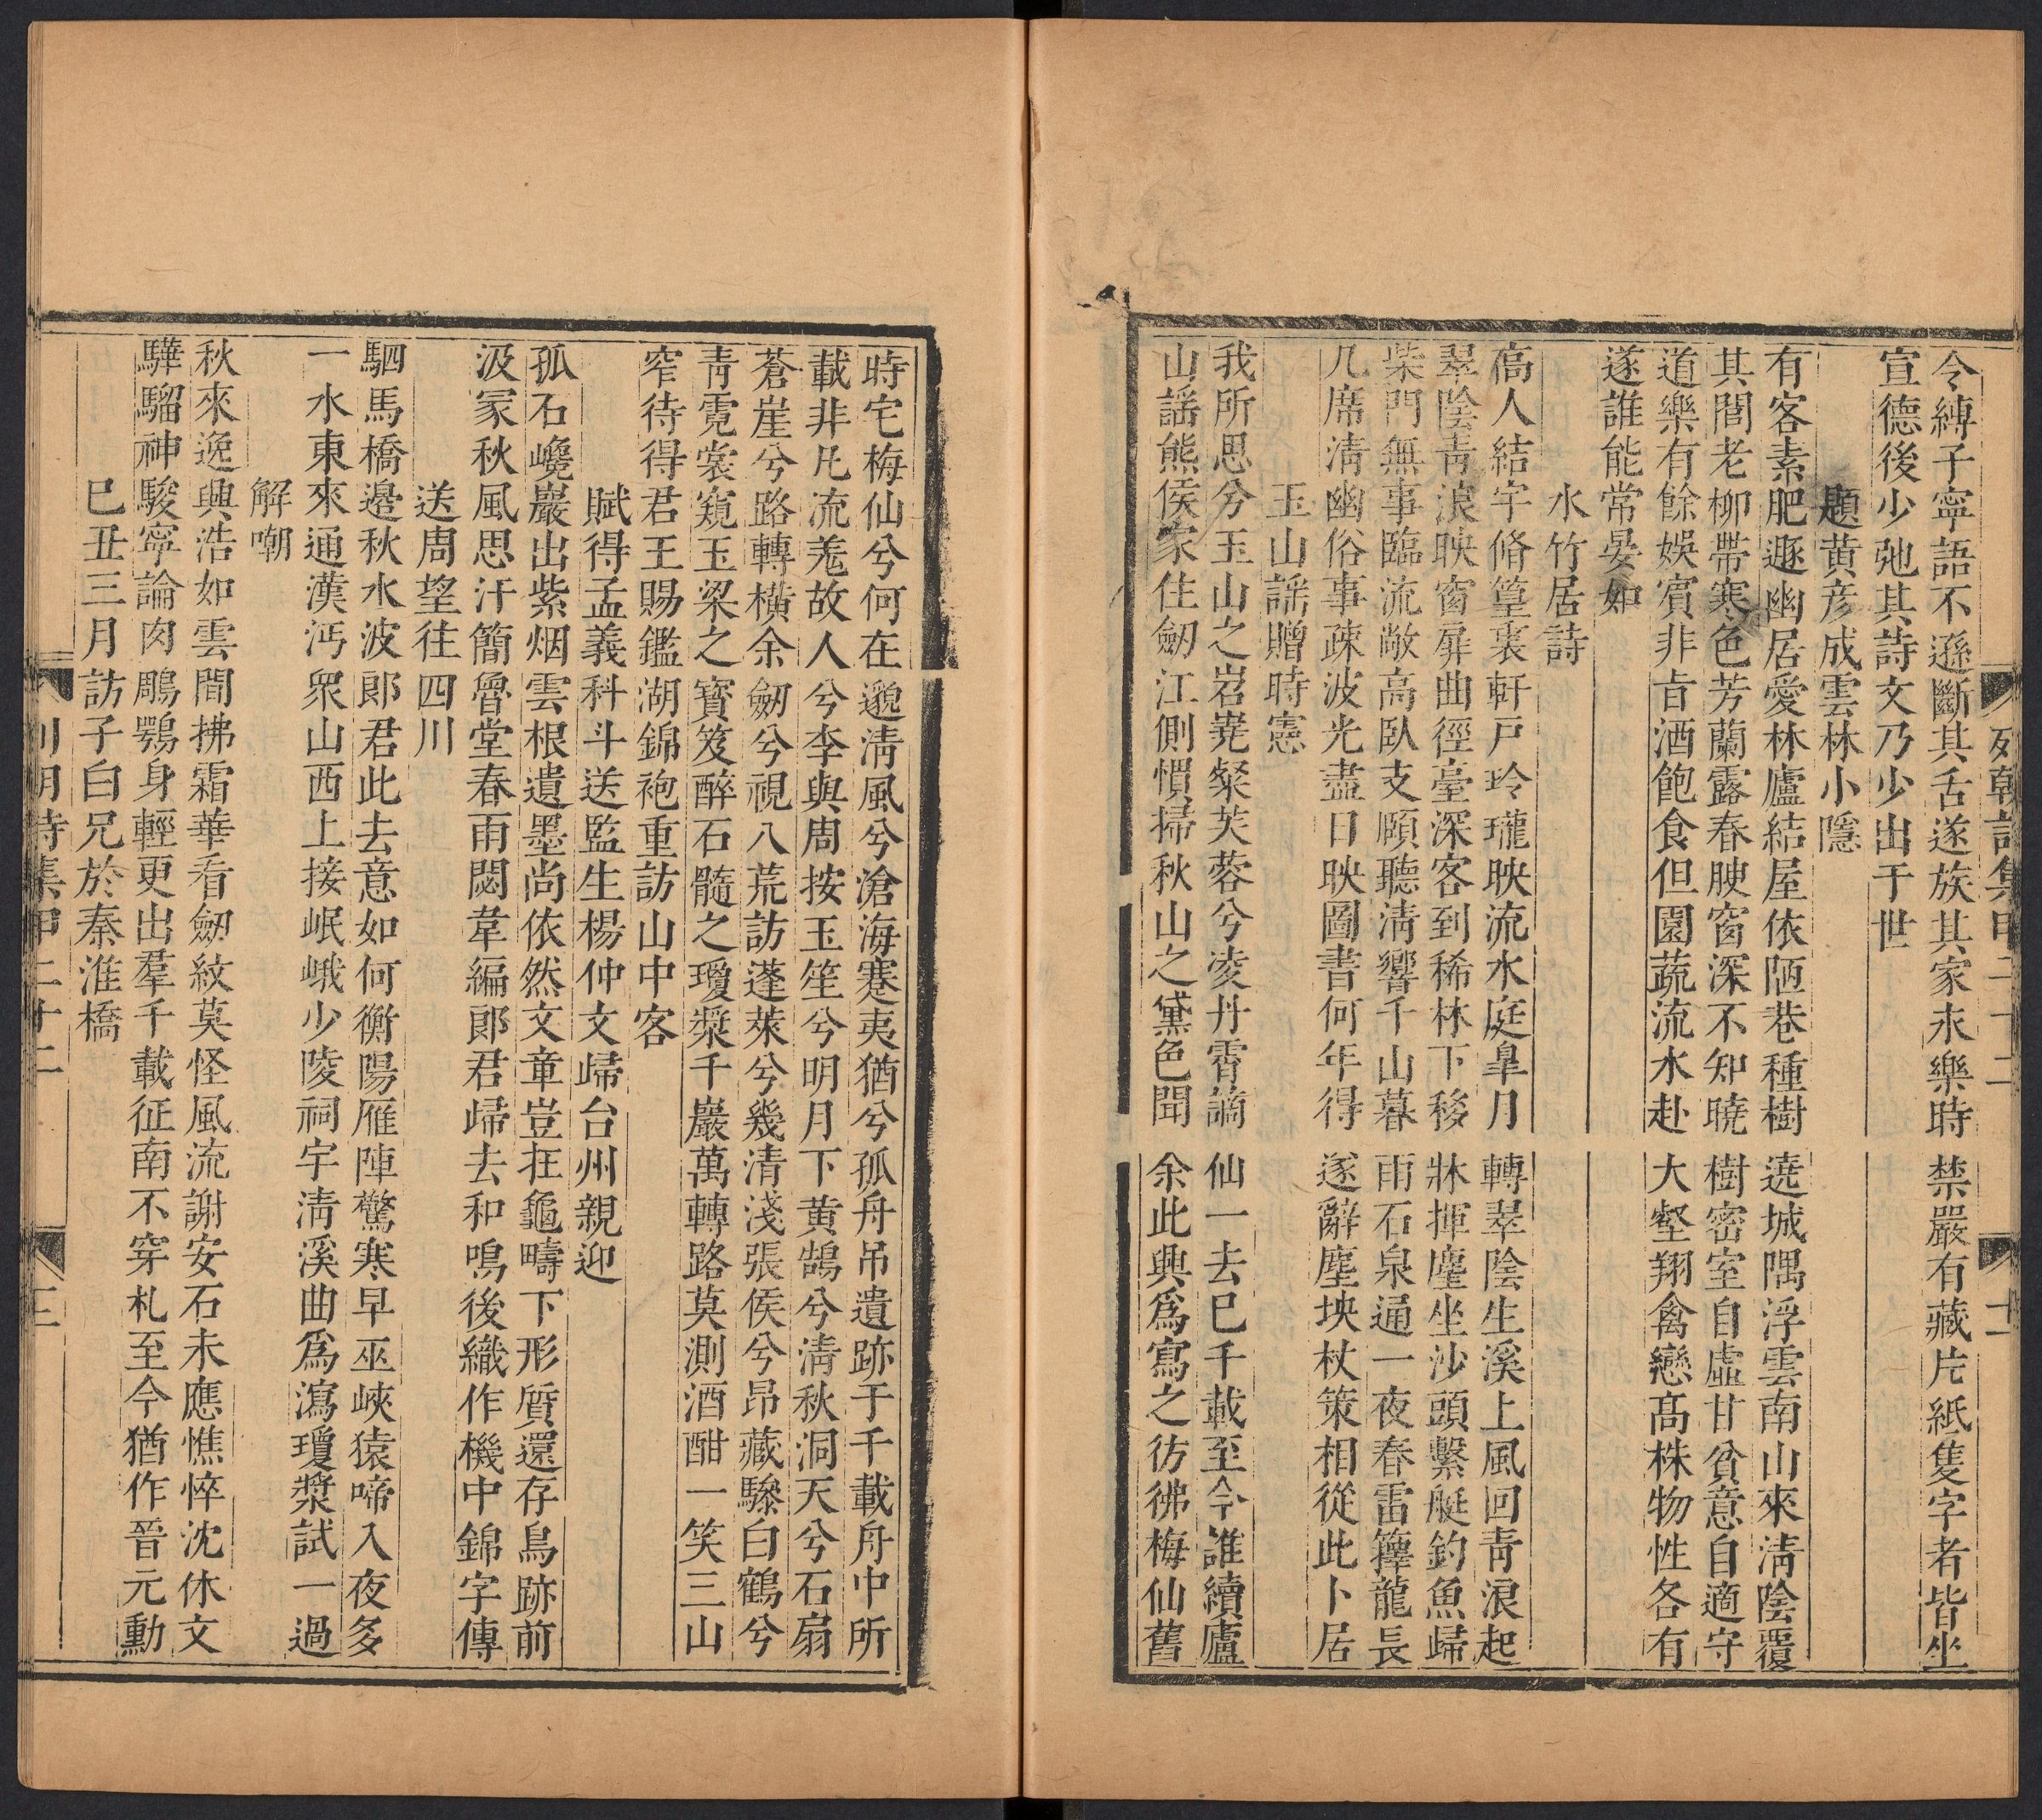 列朝詩集甲二十二
十一
令縛子寧語不遜斷其舌遂族其家永樂時禁嚴有藏片紙隻字者皆坐
宣德後少弛其詩文乃少出于世
題黃彥成雲林小隱
有客素肥遯幽居愛林廬結屋依陋巷種樹遶城隅浮雲南山來淸陰覆
其閭老柳帶寒色芳蘭露春腴窗深不知曉樹密室自虛甘貧意自適守
道樂有餘娛賓非旨酒飽食但園蔬流水赴大壑翔禽戀高株物性各有
遂誰能常晏如
水竹居詩
高人結宇脩篁裏軒戶玲瓏映流水庭皐月轉翠陰生溪上風回靑浪起
翠陰靑浪映窗屛曲徑臺深客到稀林下移牀揮麈坐沙頭繫艇釣魚歸
柴門無事臨流敞高臥支頤聽淸響千山暮雨石泉通一夜春雷籜龍長
几席淸幽俗事疎波光盡日映圖書何年得遂辭塵坱杖策相從此卜居
玉山謠贈時憲
我所思兮玉山之岧嶤粲芙蓉兮凌丹霄謫仙一去已千載至今誰續廬
山謠熊侯家住劒江側慣掃秋山之黛色聞余此興爲寫之彷彿梅仙舊
時宅梅仙兮何在邈淸風兮滄海蹇夷猶兮孤舟吊遺跡于千載舟中所
載非凡流羗故人兮李與周按玉笙兮明月下黃鵠兮淸秋洞天兮石扇
蒼崖兮路轉橫余劒兮視八荒訪蓬萊兮幾清淺張侯兮昂藏驂白鶴兮
靑霓裳窺玉梁之寳笈醉石髓之瓊漿千巖萬轉路莫測酒酣一笑三山
窄待得君王賜鑑湖錦袍重訪山中客
賦得孟義科斗送監生楊仲文歸台州親迎
孤石巉巖出紫烟雲根遺墨尚依然文章豈在龜疇下形質還存鳥跡前
汲冢秋風思汗簡魯堂春雨閟韋編郞君歸去和鳴後織作機中錦字傳
送周望往四川
駟馬橋邊秋水波郞君此去意如何衡陽雁陣驚寒早巫峽猿啼入夜多
一水東來通漢沔眾山西上接岷峨少陵祠宇淸溪曲爲瀉瓊漿試一過
解嘲
秋來逸興浩如雲閒拂霜華看劒紋莫怪風流謝安石未應憔悴沈休文
驊騮神駿寧論肉鵰鶚身輕更出羣千載征南不穿札至今猶作晉元勳
已丑三月訪子白兄於秦淮橋
列朝詩集甲二十二
三